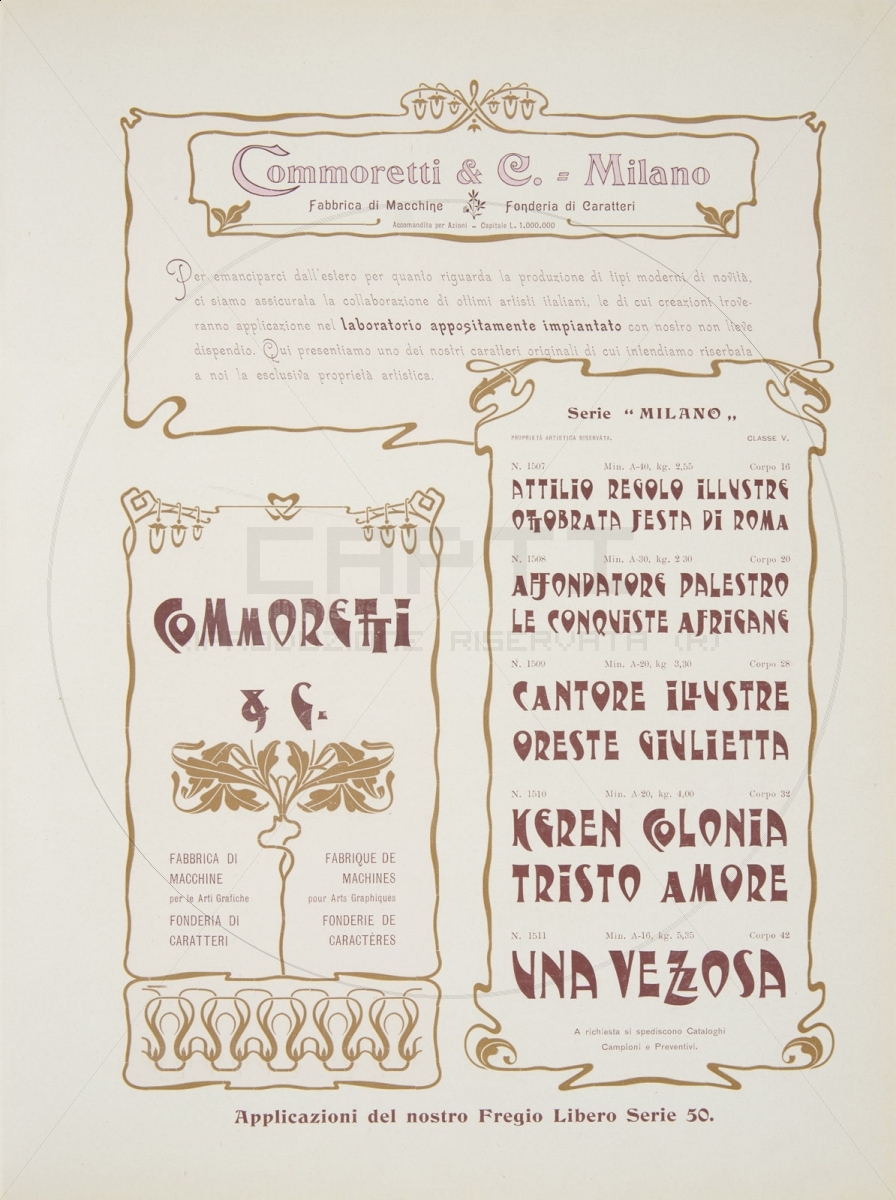 Commoretti & C. = Milano
Fabbrica di Macchine Fonderia di Caratteri
Accomandita per Azioni – Capitale L. 1.000.000
Per emanciparci dall'estero per quanto riguarda la produzione di tipi moderni di novità,
ci siamo assicurata la collaborazione di ottimi artisti italiani, le di cui creazioni trove-
ranno applicazione nel laboratorio appositamente impiantato con nostro non lieve
dispendio. Qui presentiamo uno dei nostri caratteri originali di cui intendiamo riserbata
a noi la esclusiva proprietà artistica.
COMMORETTI
& C.
FABBRICA DI
MACCHINE
per le Arti Grafiche
FONDERIA DI
CARATTERI
FABRIQUE DE
MACHINES
pour Arts Graphiques
FONDERIE DE
CARACTÈRES
Serie “MILANO„
PROPRIETÀ ARTISTICA RISERVATA. CLASSE V.
N. 1507 Min. A-40, kg. 2,55 Corpo 16
ATTILIO REGOLO ILLUSTRE
OTTOBRATA FESTA DI ROMA
N. 1508 Min. A-30, kg. 2 30 Corpo 20
AFFONDATORE PALESTRO
LE CONQUISTE AFRICANE
N. 1509 Min. A-20, kg 3,30 Corpo 28
CANTORE ILLUSTRE
ORESTE GIULIETTA
N. 1510 Min. A-20, kg. 4,00 Corpo 32
KEREN COLONIA
TRISTO AMORE
N. 1511 Min. A-16, kg. 5,35 Corpo 42
UNA VEZZOSA
A richiesta si spediscono Cataloghi
Campioni e Preventivi.
Applicazioni del nostro Fregio Libero Serie 50.
CAPTT
RIPRODUZIONE RISERVATA (R)